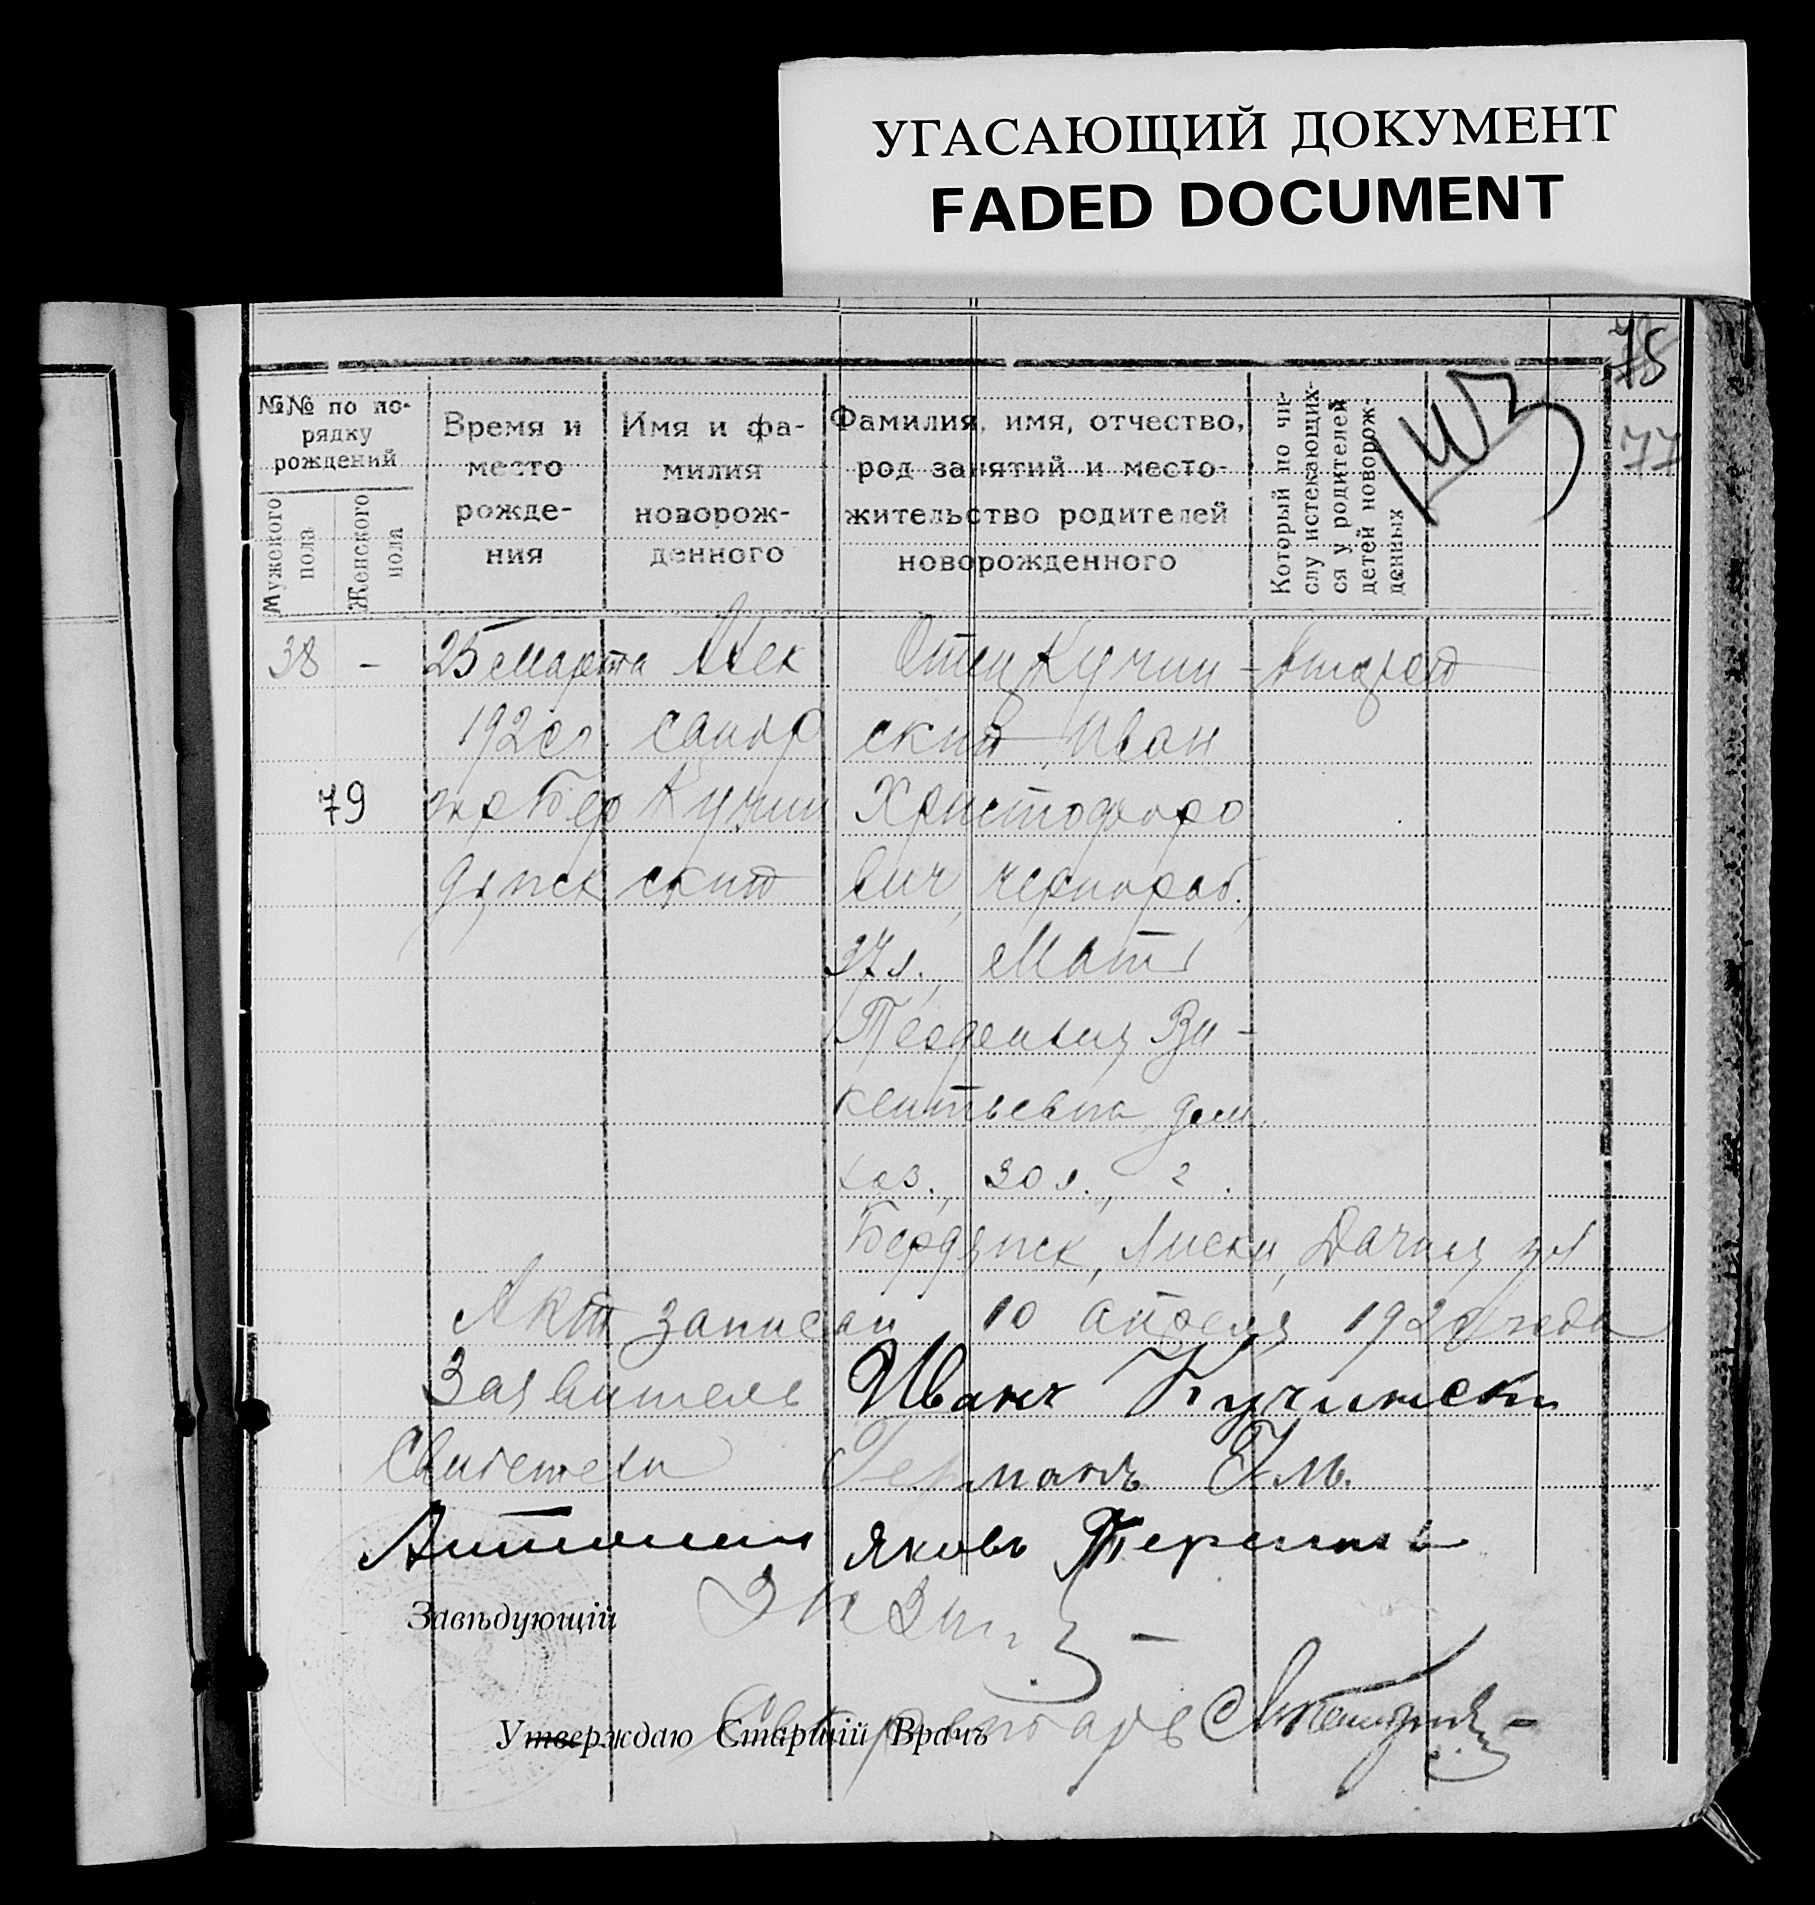 УГАСАЮЩИЙ ДОКУМЕНТ
FADED DOCUMENT
75
77
№№ по по-
рядку
рождений
Мужского
пола
Женского
пола
Время и
место
рожде-
ния
Имя и фа-
милия
новорож-
денного
Фамилия, имя, отчество,
род занятий и место-
жительство родителей
новорожденного
Который по чи-
слу истекающих-
ся у родителей
детей новорож-
денных
38 – 25 марта Алек Отец Кучин-
1920 г. сандр ский Иван
79 гор Бер Кучин Христофоро
дянск ский вич, чернораб.,
37 л., Мать
Ви-
кентьевна, дом.
хоз., 30 л., г.
Бердянск, Лиски, Дачная ул
Акт записан 10 апреля 1920 года
Заявитель Иванъ Кучински
Свидетели Германъ
Яковъ
Завѣдующій
Утверждаю Старшій Врачъ
Секретарь